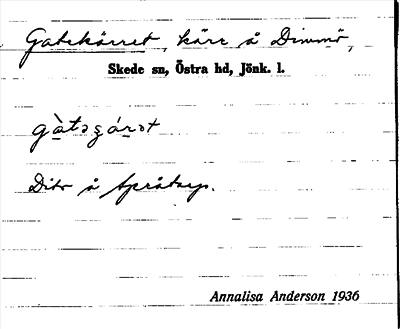 Gatekärret, kärr å Dimmö,
Skede sn, Östra hd, Jönk. l.
gàtəgárət
Dito å Språtorp.
Annalisa Anderson 1936